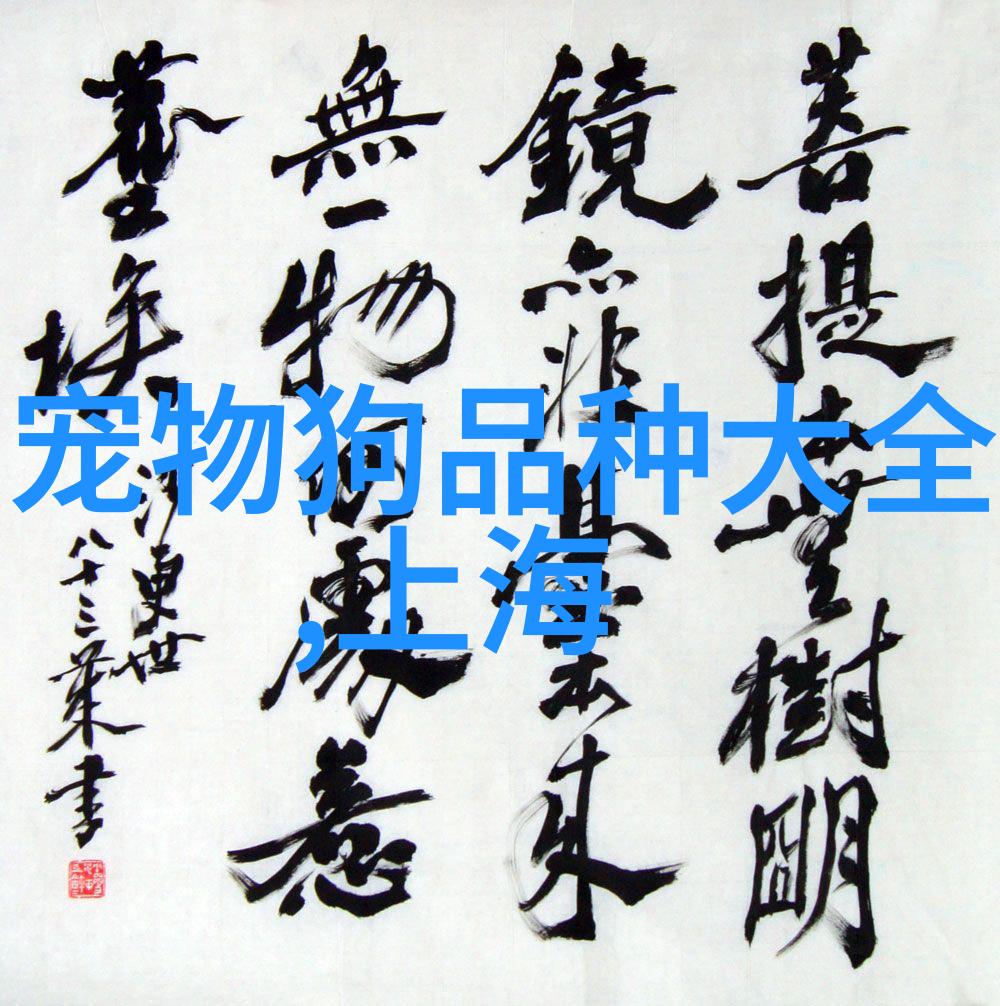 宠物狗品种大全
,上海
菩提本無樹朙
鏡亦非臺本來
無一物何處惹
塵埃
沙更世
八十三書